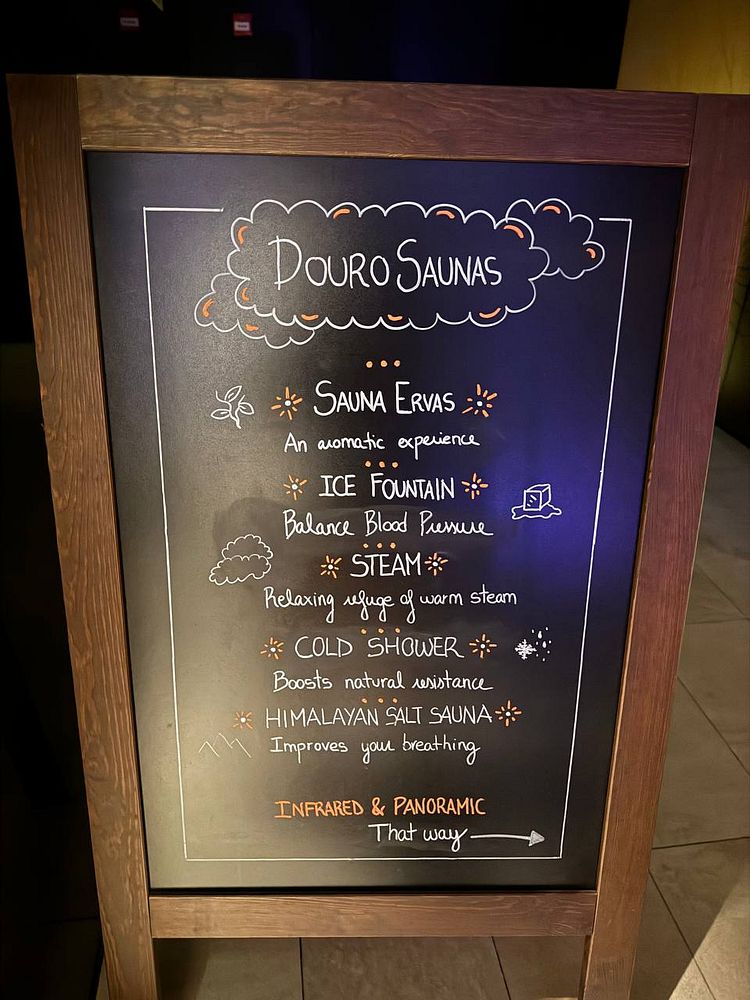 DOURO SAUNAS
SAUNA ERVAS
An aromatic experience
ICE FOUNTAIN
Balance Blood Pressure
STEAM
Relaxing refuge of warm steam
COLD SHOWER
Boosts natural resistance
HIMALAYAN SALT SAUNA
Improves your breathing
INFRARED & PANORAMIC
That way